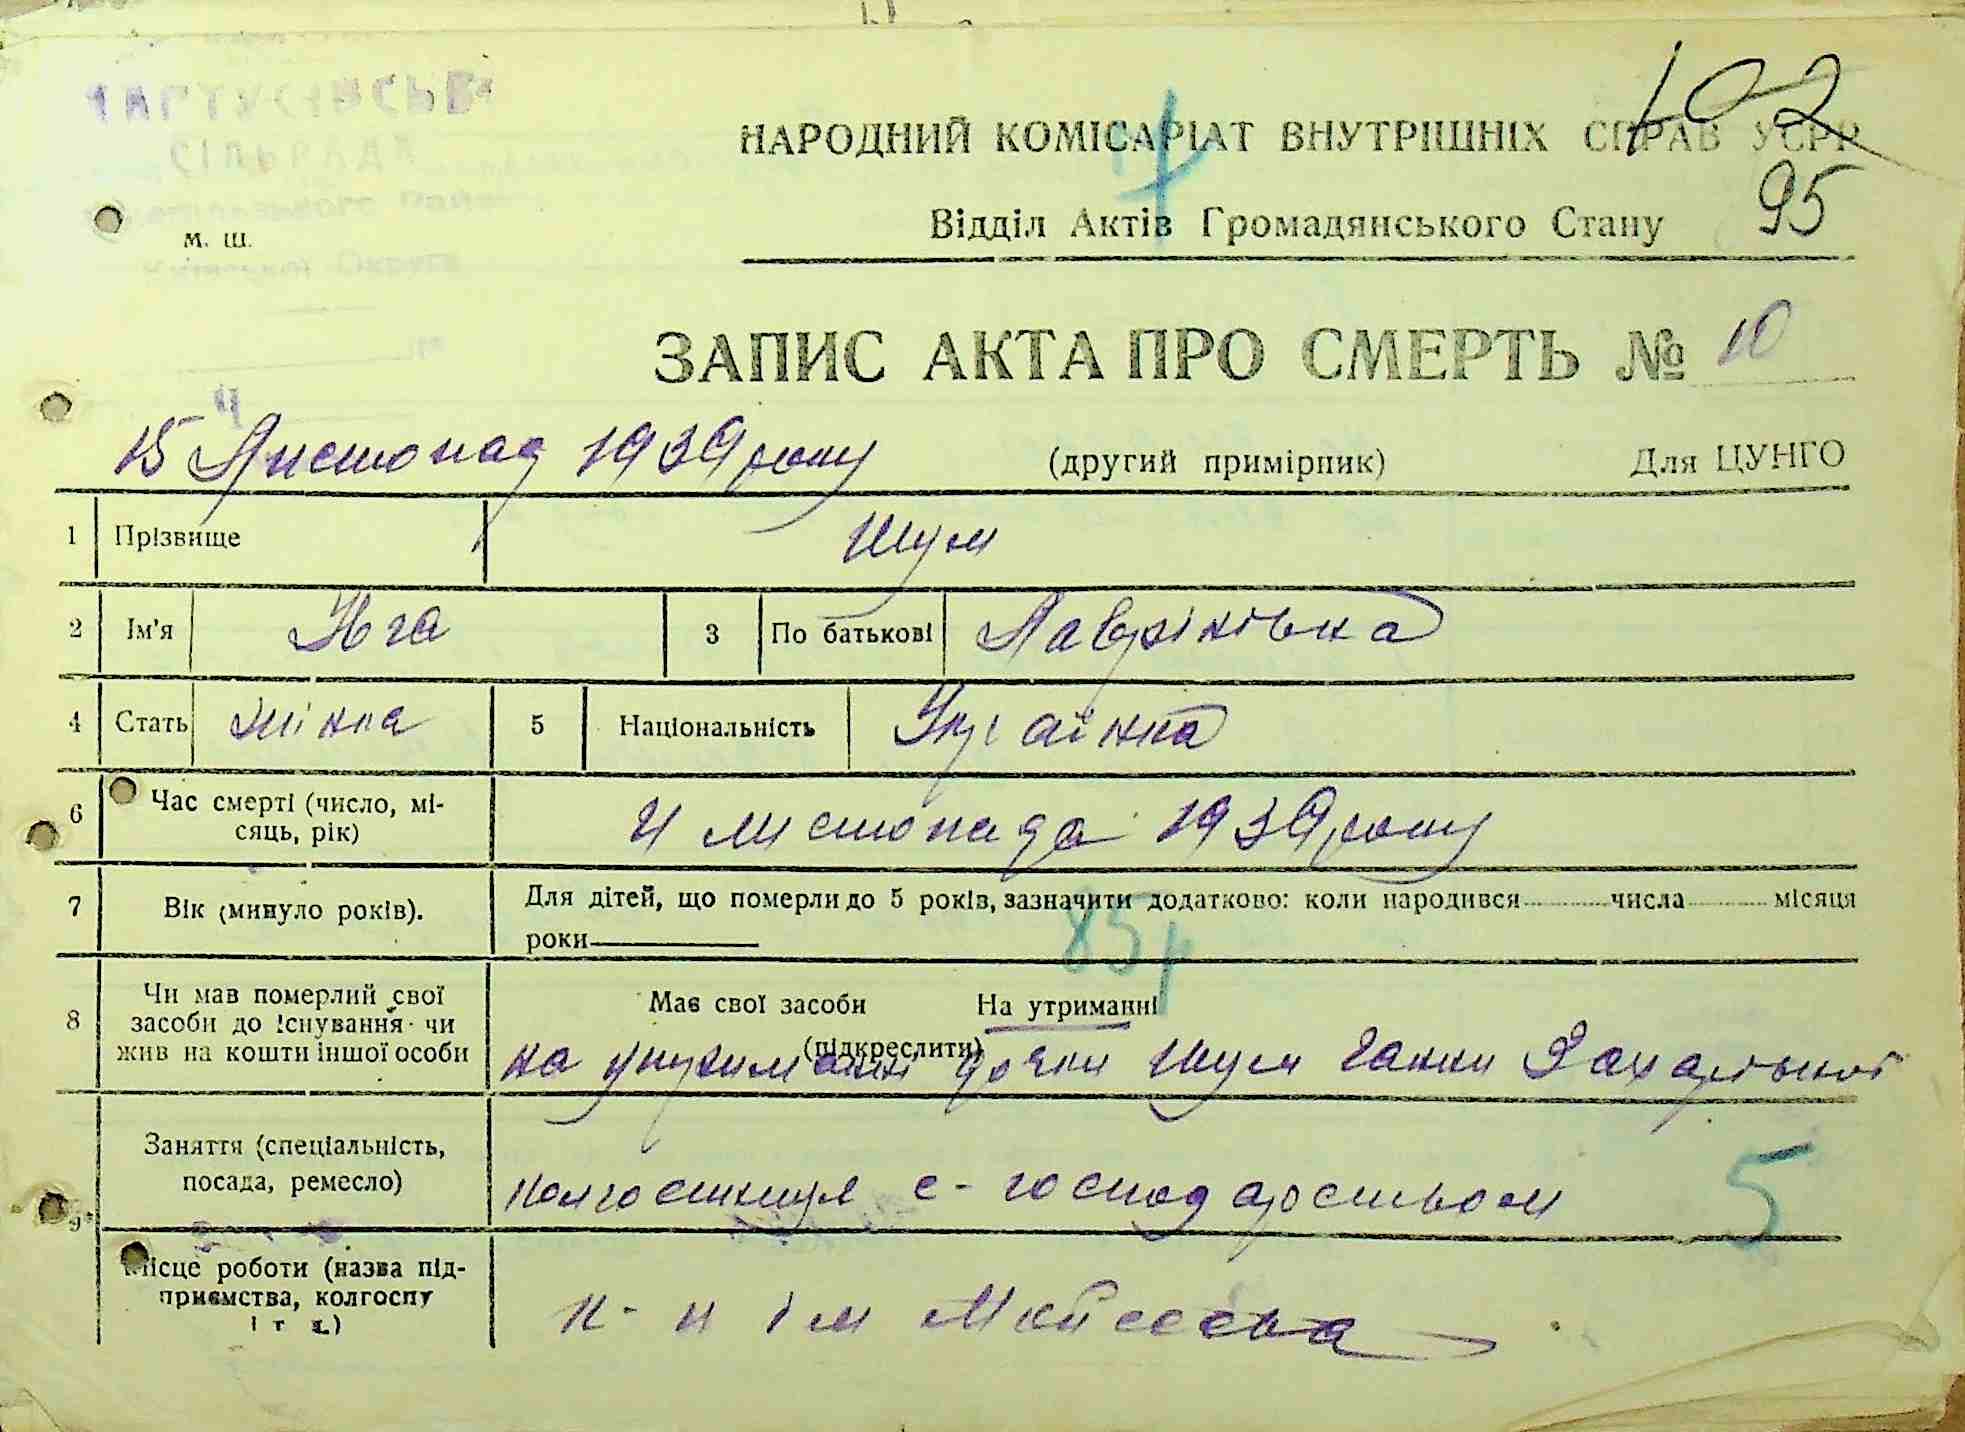 СІЛЬРАДА
102
НАРОДНИЙ КОМІСАРІАТ ВНУТРІШНІХ СПРАВ УСРР
95
Відділ Актів Громадянського Стану
м. ш.
ЗАПИС АКТА ПРО СМЕРТЬ № 10
15 Листопад 1939 року (другий примірник) Для ЦУНГО
1 Прізвище Шум
2 Ім'я Юга 3 По батькові Лаврінівна
4 Стать жінка 5 Національність Украінка
6 Час смерті (число, мі-
сяць, рік) 4 листопада 1939 року
7 Вік (минуло років). Для дітей, що померли до 5 років, зазначити додатково: коли народився числа місяця
роки 85 р
8 Чи мав померлий свої
засоби до існування чи
жив на кошти іншої особи
Має свої засоби На утриманні
(підкреслити)
на утриманні дочки Шум Ганни Захарівної
9 Заняття (спеціальність,
посада, ремесло) колгоспниця с-господарством
5
Місце роботи (назва під-
приємства, колгоспу
і т д.)
к-п ім